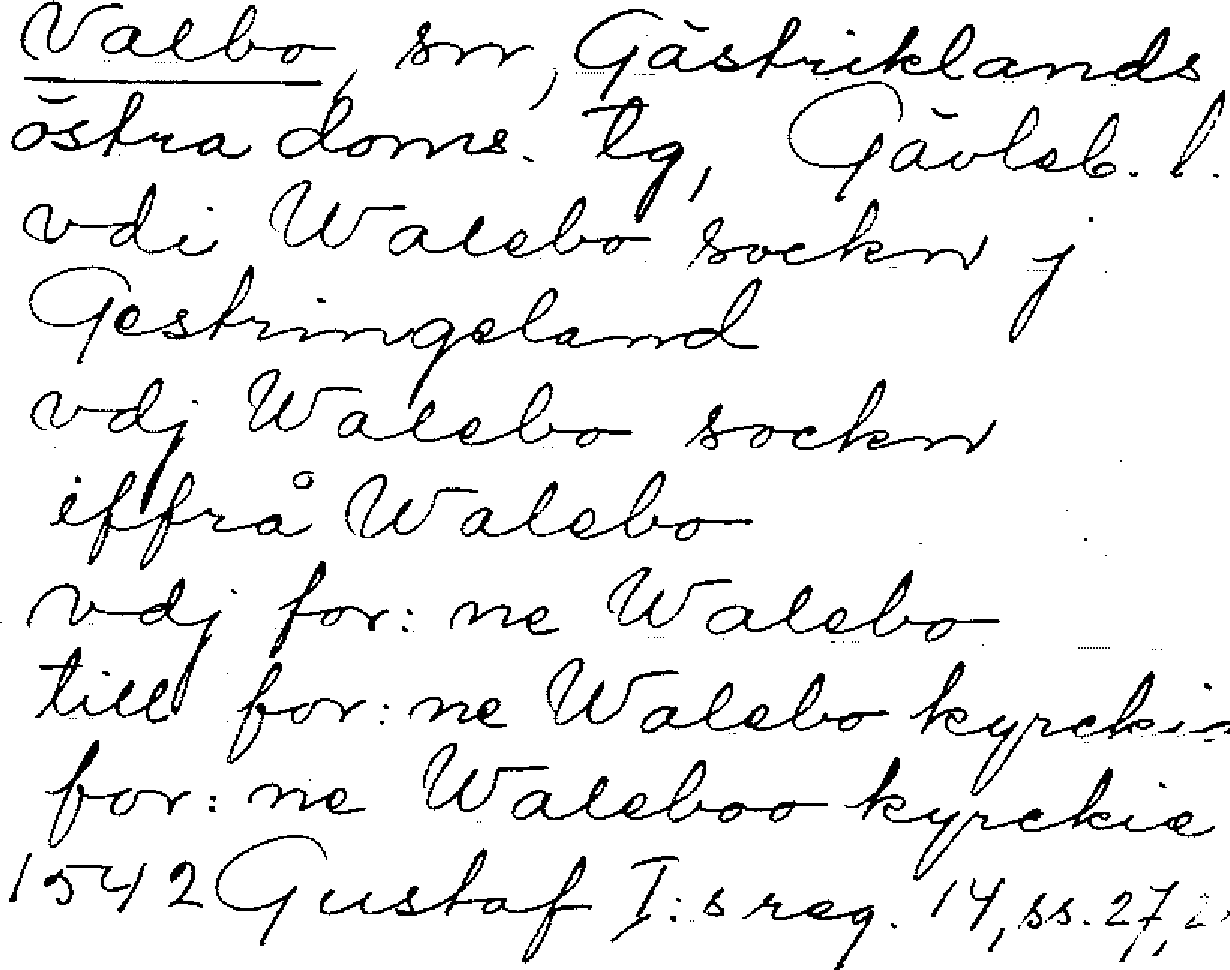 Valbo, sn, Gästriklands
östra doms. tg, Gävleb. l.
vdi Walebo sockn j
Gestringeland
vdj Walebo sockn
iffrå Walebo
vdj for: ne Walebo
till for: ne Walebo kyrckia
for: ne Waleboo kyrckie
1542 Gustaf I:s reg. 14, ss. 27,